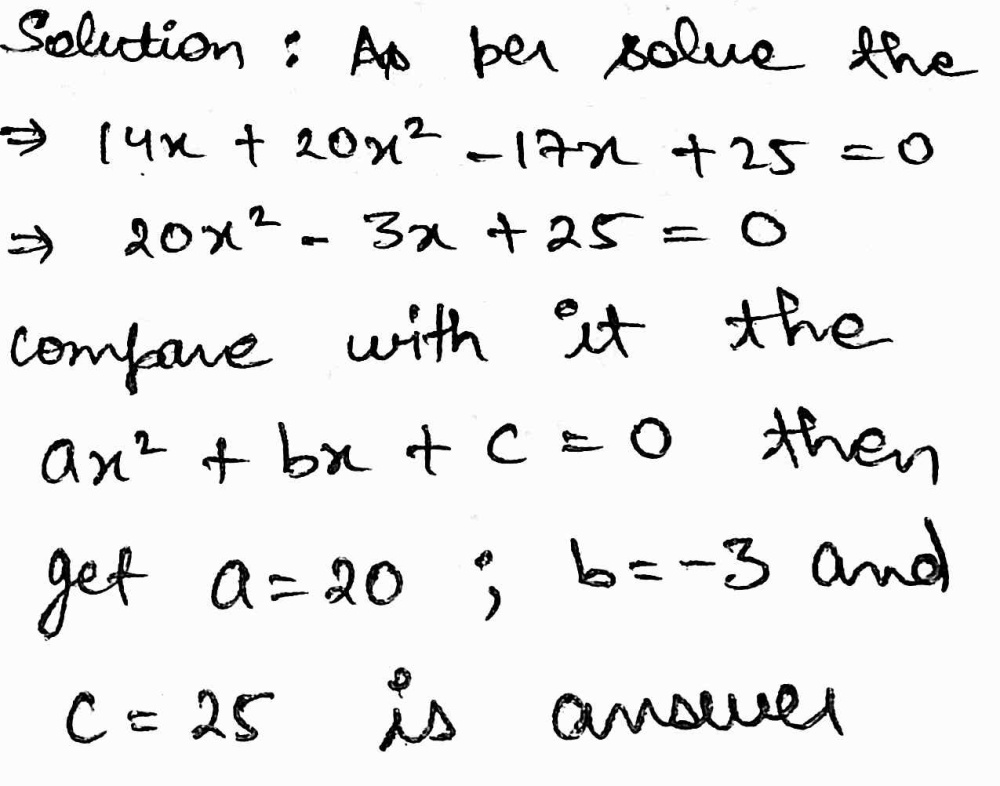 Solution : As per solve the
⇒ 14x + 20x² - 17x + 25 = 0
⇒ 20x² - 3x + 25 = 0
compare with it the
ax² + bx + c = 0 then
get a = 20 ; b = -3 and
c = 25 is answer